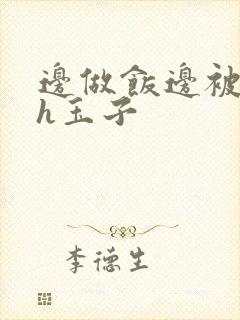 邊做飯邊被
h玉子
李德生